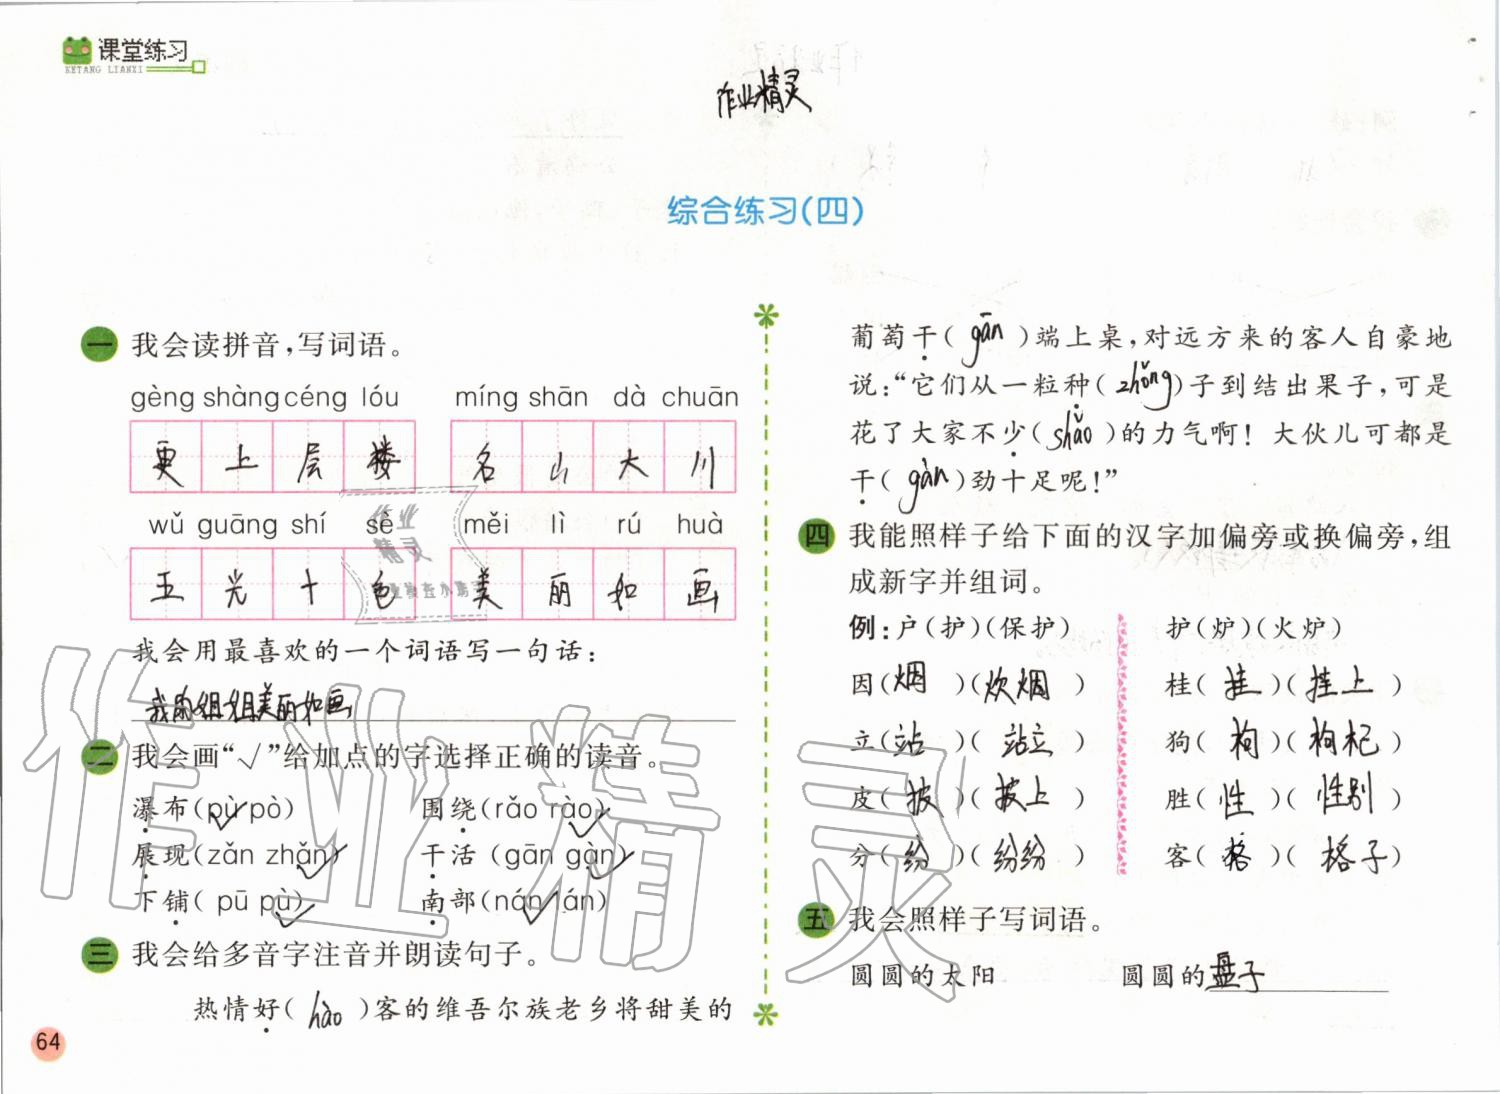 课堂练习
KETANG LIANXI
作业精灵
综合练习(四)
一 我会读拼音,写词语。
gèng shàng céng lóu míng shān dà chuān
更上层楼 名山大川
wǔ guāng shí sè měi lì rú huà
五光十色 美丽如画
我会用最喜欢的一个词语写一句话:
我的姐姐美丽如画
二 我会画“√”给加点的字选择正确的读音。
瀑布(pù√ pò) 围绕(rǎo rào√)
展现(zǎn zhǎn√) 干活(gān gàn√)
下铺(pū pù√) 南部(nán√ lán)
三 我会给多音字注音并朗读句子。
热情好(hào)客的维吾尔族老乡将甜美的
64
葡萄干(gān)端上桌,对远方来的客人自豪地
说:“它们从一粒种(zhǒng)子到结出果子,可是
花了大家不少(shǎo)的力气啊!大伙儿可都是
干(gàn)劲十足呢!”
四 我能照样子给下面的汉字加偏旁或换偏旁,组
成新字并组词。
例:户(护)(保护) 护(炉)(火炉)
因(烟)(炊烟) 桂(挂)(挂上)
立(站)(站立) 狗(枸)(枸杞)
皮(披)(披上) 胜(性)(性别)
分(纷)(纷纷) 客(格)(格子)
五 我会照样子写词语。
圆圆的太阳 圆圆的盘子
作业精灵
作业
精灵